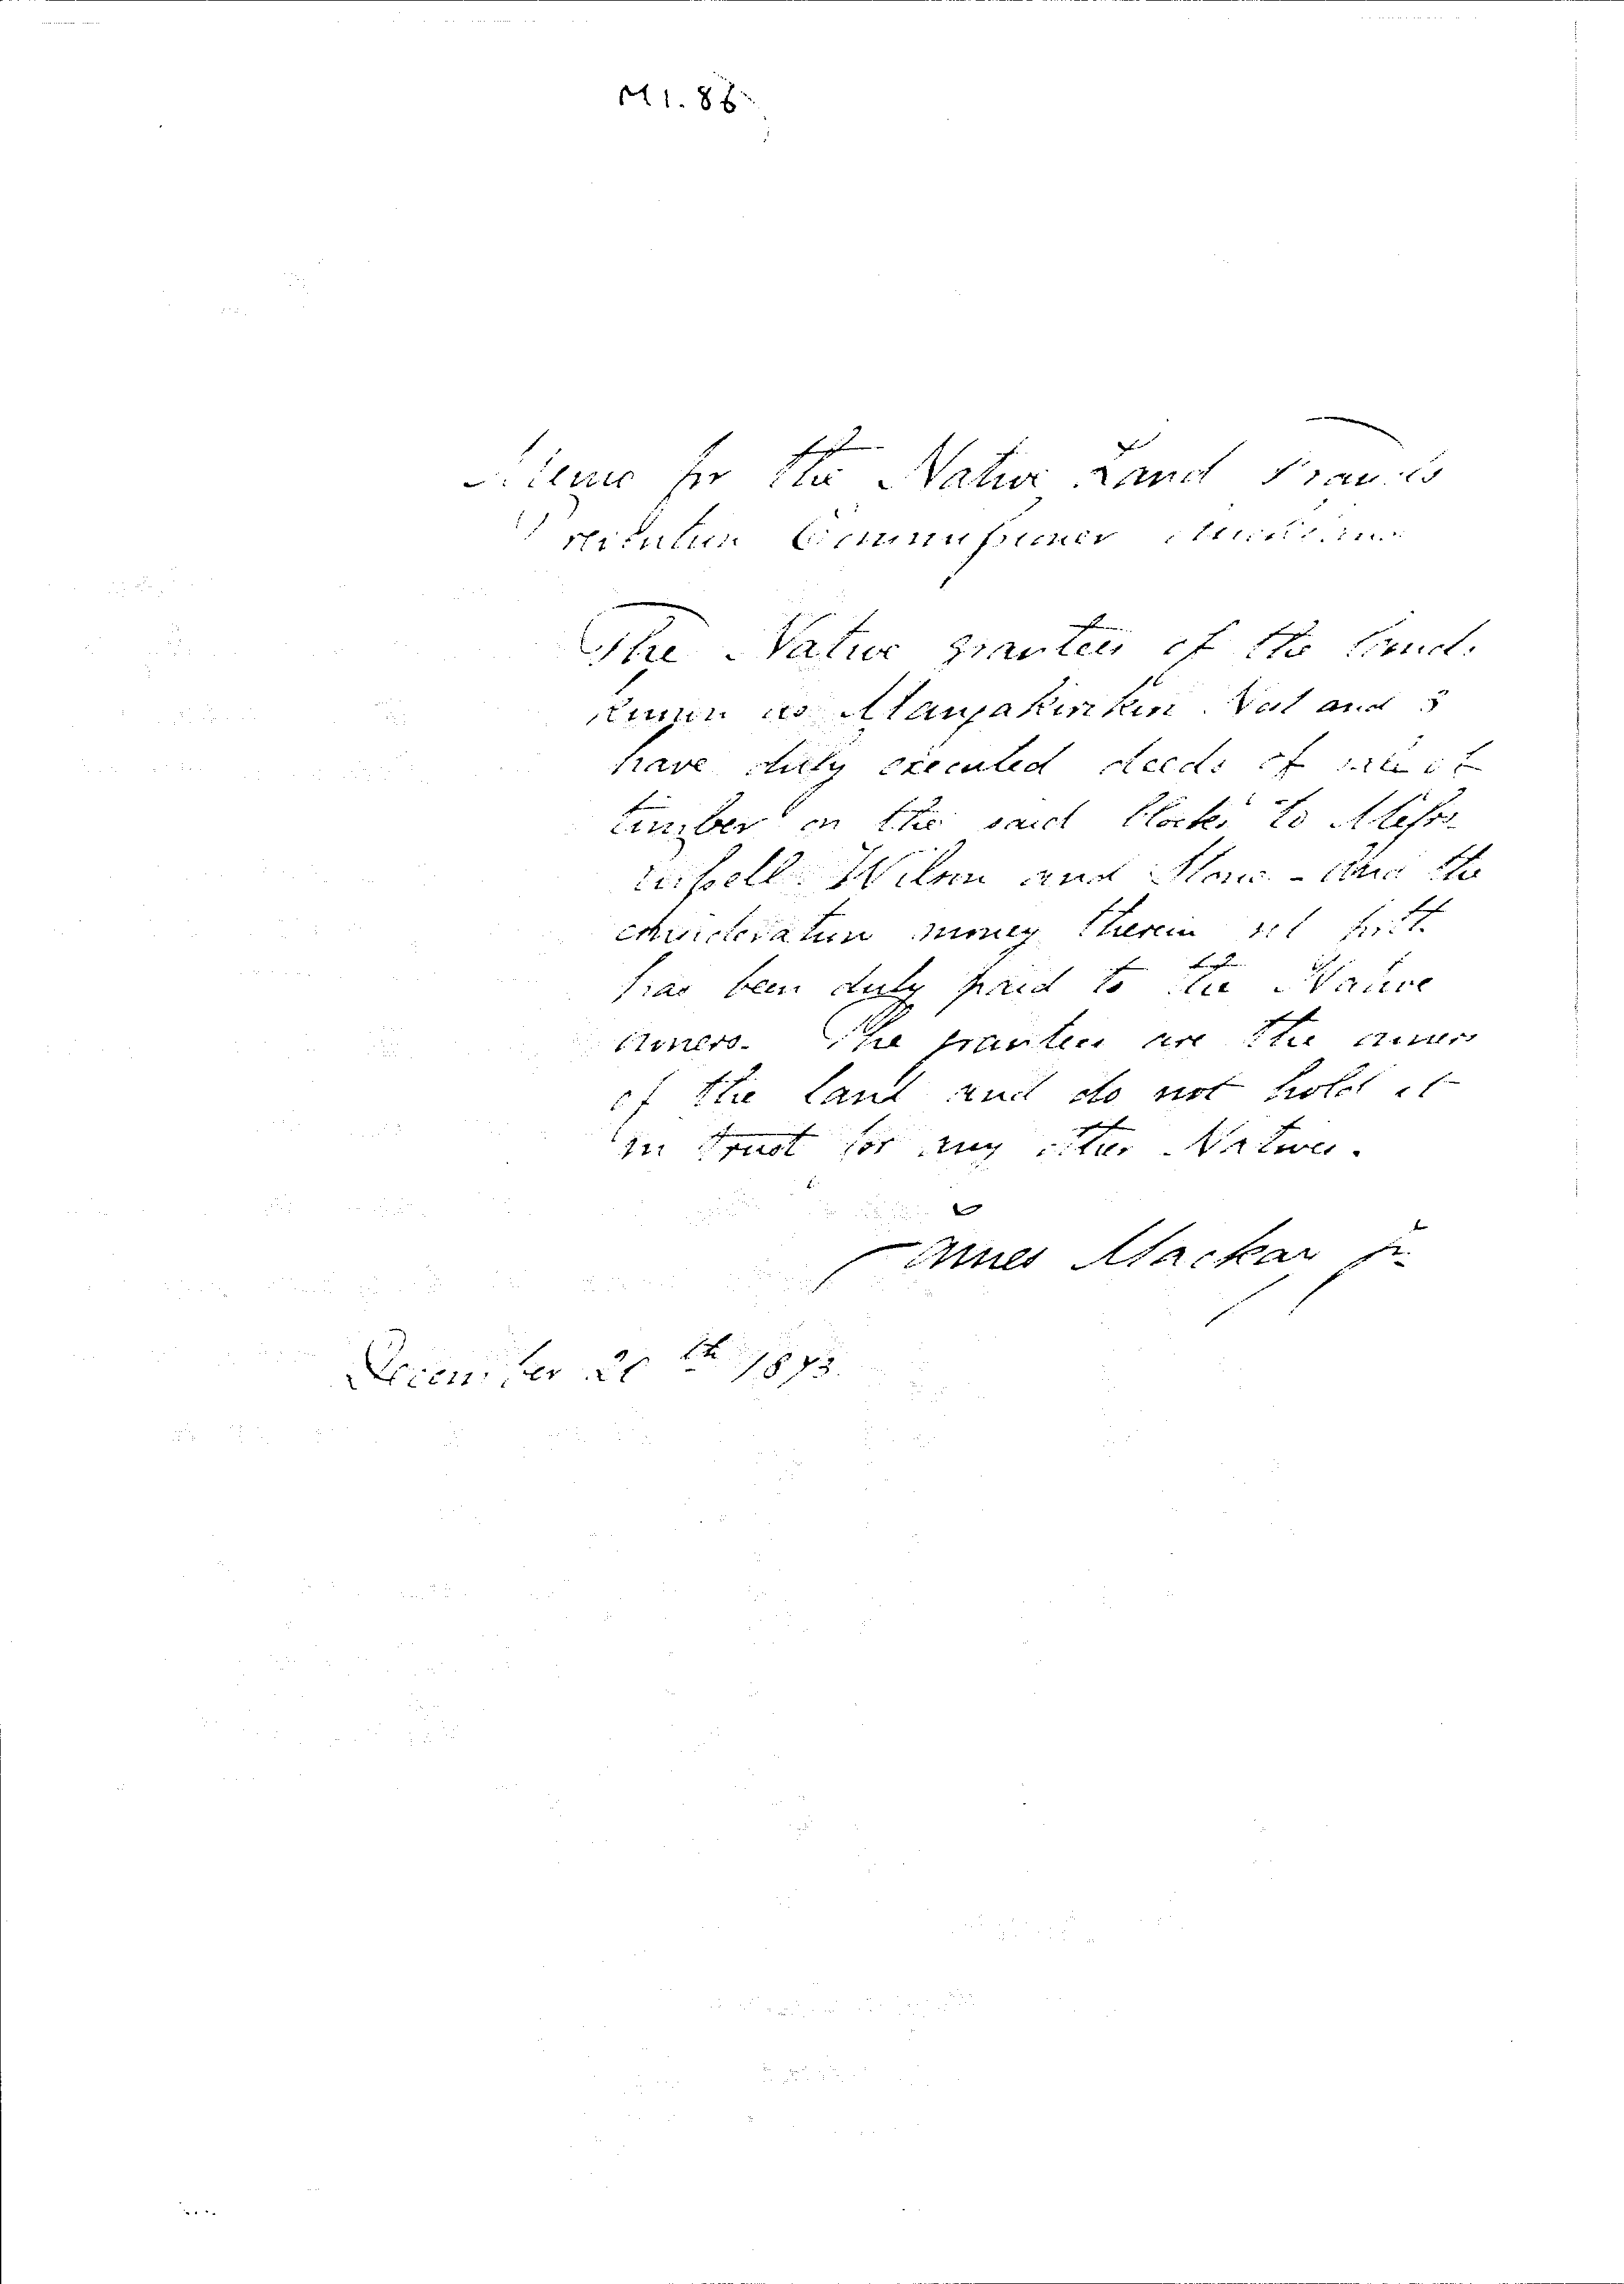 M1. 86
Memo for the Native Land Frauds
Prevention Commissioner
The Native grantees of the land
known as Mangakirikiri No 1 and 3
have duly executed deeds of sale of
timber on the said blocks to Messrs
Russell Wilson and Stone - And the
consideration money therein set forth
has been duly paid to the Native
owners. The grantees are the owners
of the land and do not hold it
in trust for any other Natives.
James Mackay Jr
December 20th 1873.